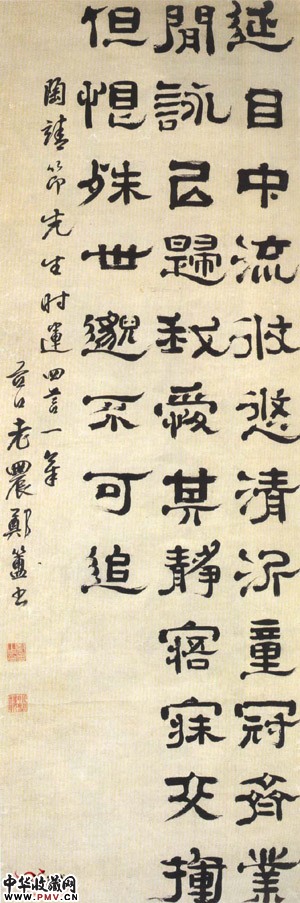 延目中流攸悠清沂童冠齊業
閒詠以歸我愛其靜寤寐交揮
但恨殊世邈不可追
陶靖節先生時運四言一章
谷口老農鄭簠書
中华收藏网
www.PMV.cn